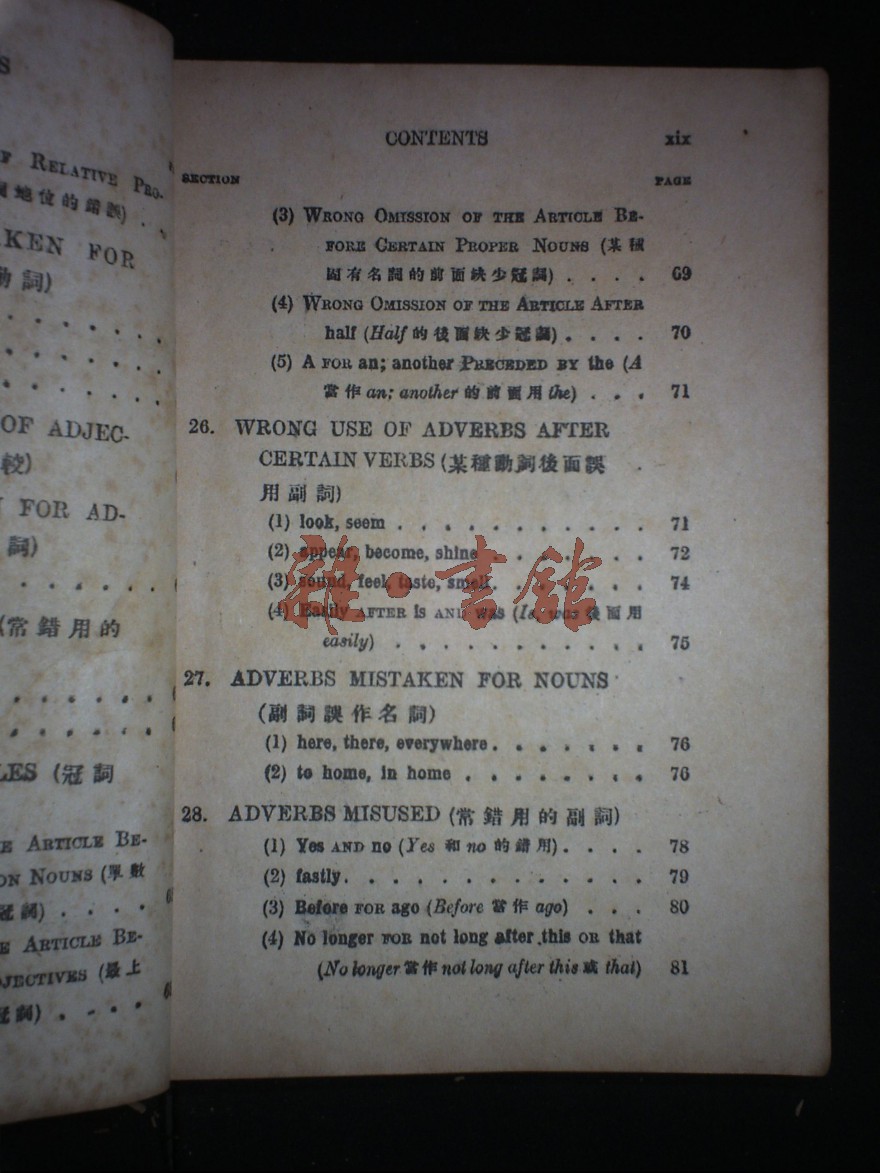 S
OF RELATIVE PRO-
地位的錯誤) . .
TAKEN FOR
動詞)
OF ADJEC-
較)
FOR AD-
詞)
(常錯用的
LES (冠詞
ARTICLE BE-
ON NOUNS (單數
冠詞) . . . .
ARTICLE BE-
JECTIVES (最上
冠詞) . . . .
CONTENTS xix
SECTION PAGE
(3) WRONG OMISSION OF THE ARTICLE BE-
FORE CERTAIN PROPER NOUNS (某種
固有名詞的前面缺少冠詞) . . . . 69
(4) WRONG OMISSION OF THE ARTICLE AFTER
half (Half 的後面缺少冠詞) . . . . 70
(5) A FOR an; another PRECEDED BY the (A
當作 an; another 的前面用 the) . . . 71
26. WRONG USE OF ADVERBS AFTER
CERTAIN VERBS (某種動詞後面誤
用副詞)
(1) look, seem . . . . . . . . . . . 71
(2) appear, become, shine . . . . . . . 72
(3) sound, feel, taste, smell . . . . . . . 74
(4) Easily AFTER is AND was (Is, was 後面用
easily) . . . . . . . . . . . 75
27. ADVERBS MISTAKEN FOR NOUNS
(副詞誤作名詞)
(1) here, there, everywhere . . . . . . . 76
(2) to home, in home . . . . . . . . 76
28. ADVERBS MISUSED (常錯用的副詞)
(1) Yes AND no (Yes 和 no 的錯用) . . . . 78
(2) fastly . . . . . . . . . . . . . 79
(3) Before FOR ago (Before 當作 ago) . . . 80
(4) No longer FOR not long after this OR that
(No longer 當作 not long after this 或 that) 81
雜·書館